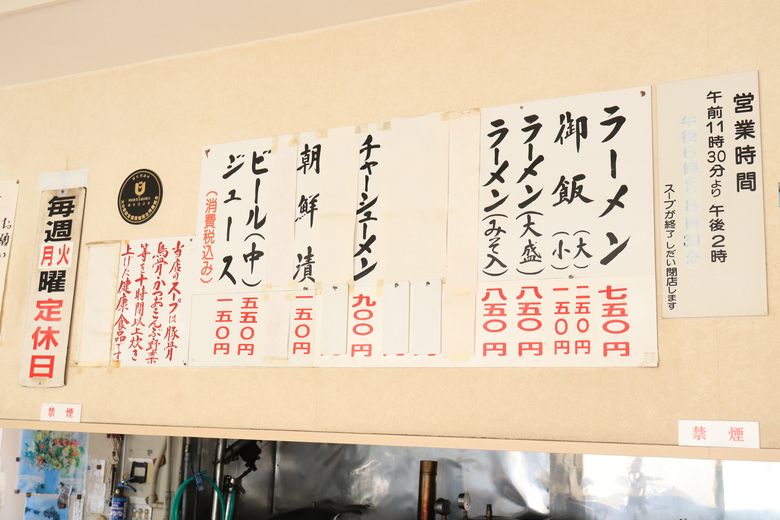 営業時間
午前11時30分より午後2時
スープが終了しだい閉店します
ラーメン
七五〇円
御飯(大)(小)
二五〇
一五〇円
ラーメン(大盛)
八五〇円
ラーメン(みそ入)
八五〇円
チャーシューメン
九〇〇円
朝鮮漬
一五〇円
ビール(中)
五五〇円
ジュース
一五〇円
(消費税込み)
当店のスープは豚骨
鳥骨かつおこんぶ野菜
等を十時間以上炊き
上げた健康食品です
毎週月火曜定休日
お願い
禁煙
禁煙